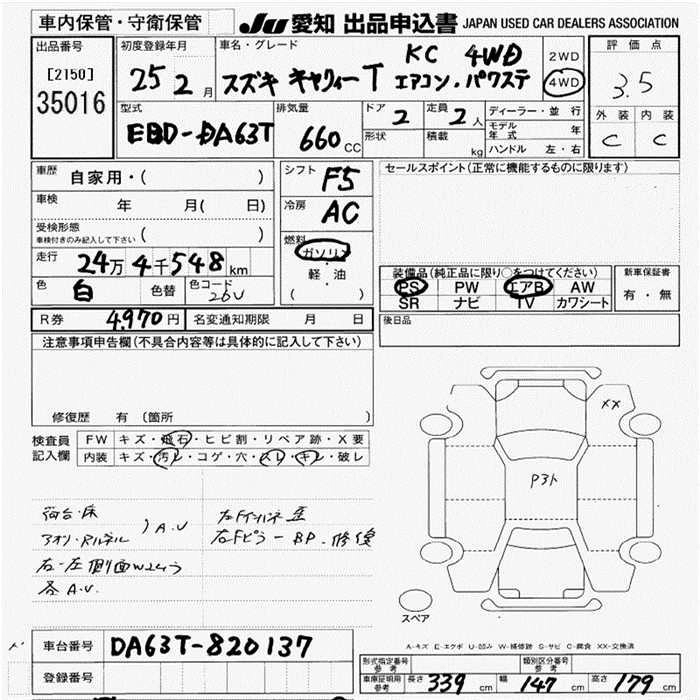 車内保管・守衛保管 JU 愛知 出品申込書 JAPAN USED CAR DEALERS ASSOCIATION
出品番号 [2150] 35016
初度登録年月 25 2月
車名・グレード スズキ キャリィーT KC 4WD エアコン・パワステ
2WD 4WD
評価点 3.5
外装 C 内装 C
型式 EBD-DA63T
排気量 660 CC
ドア 2 定員 2人
形状 積載 kg
ディーラー・並行
モデル年式 年
ハンドル 左・右
車歴 自家用・( )
車検 年 月( 日)
受検形態 車検付きのみ記入して下さい ( )
走行 24万4千548km
色 白 色替 色コード 26U
シフト F5
冷房 AC
燃料 ガソリン・軽油 ( )
セールスポイント(正常に機能するものに限ります)
装備品(純正品に限り○をつけてください) 新車保証書
PS PW エアB AW 有・無
SR ナビ TV カワシート
R券 4,970円 名変通知期限 月 日
後日品
注意事項申告欄(不具合内容等は具体的に記入して下さい)
修復歴 有 〔箇所 〕
検査員記入欄 FW キズ・飛石・ヒビ割・リペア跡・X要
内装 キズ・汚レ・コゲ・穴・スレ・キレ・破レ
荷台・床
アオリ・パネル )A.U
右・左側面W2ヶ
各A.U.
左Fインパネ歪
右Fピラー BP.修復
XX
P3ト
スペア
A-キズ E-エクボ U-凹み W-補修跡 S-サビ C-腐食 XX-交換済
車台番号 DA63T-820137
登録番号
形式指定番号 参考 類別区分番号 参考
車庫証明用 参考 長さ 339cm 幅 147cm 高さ 179cm